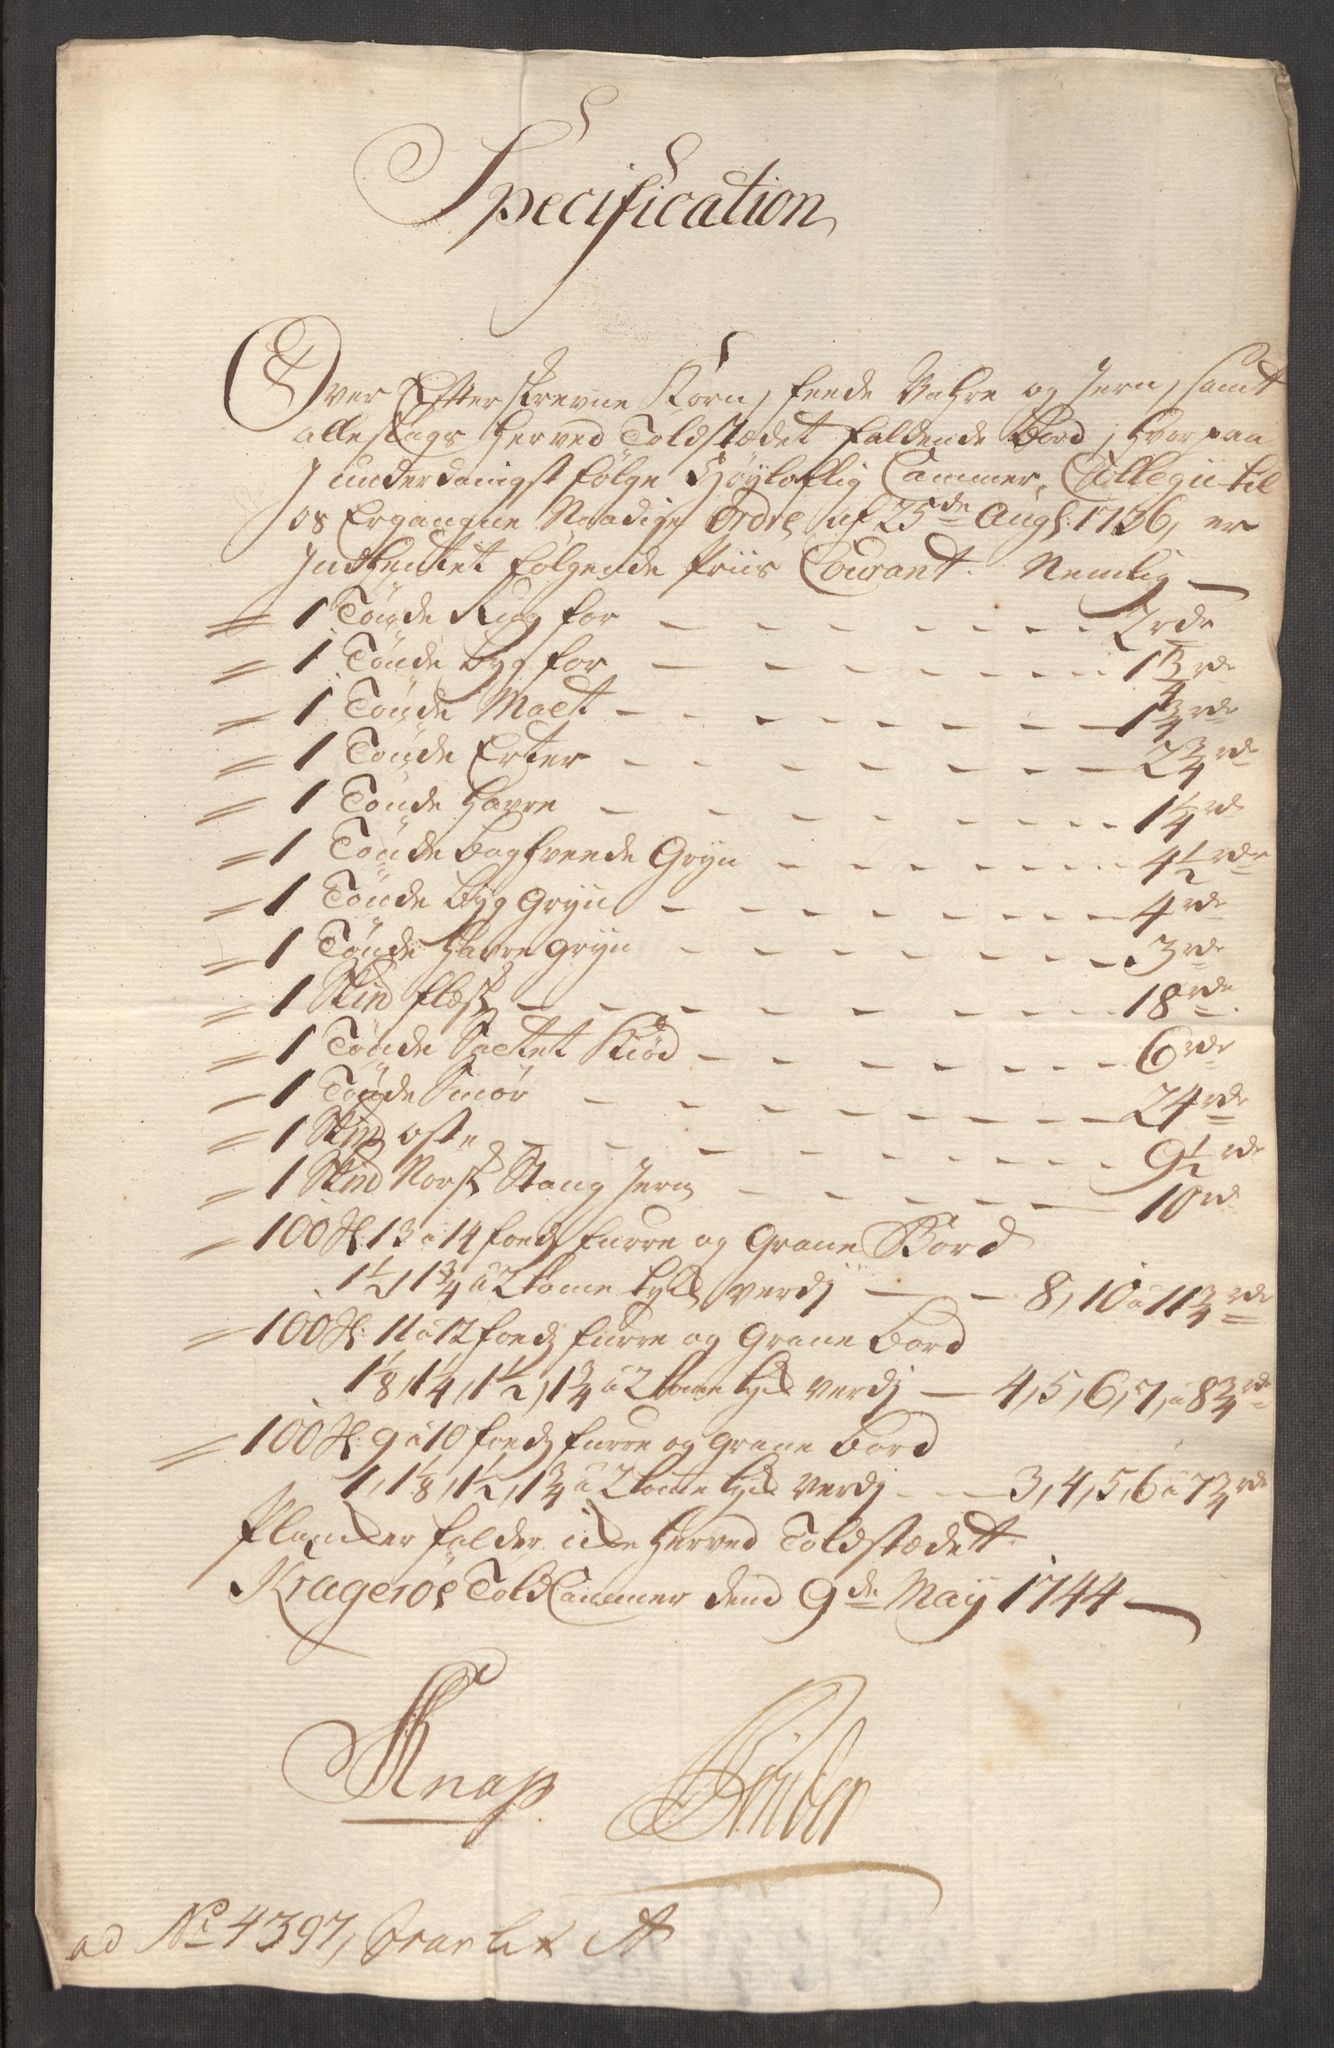 Specification
Over Efterskrevne Korn, feede Vahre og Jern, samt
alleslags herved Toldstædet faldende Bord, hvorpaa
J underdanigst følge Høyloflig Cammer Collegii til
os Ergangne Naadige Ordre af 25de Aug: 1736, er
Jndhentet følgende Priis Courant. Nemlig
1 Tønde Rug for 2 rde
1 Tønde byg for 1 3/4 rde
1 Tønde Malt 1 3/4 rde
1 Tønde Erter 2 3/4 rde
1 Tønde Havre 1 1/4 rd
1 Tønde boghveede Gryn 4 1/2 rde
1 Tønde byg Gryn 4 rde
1 Tønde Havre gryn 3 rde
1 Skind flesk 18 rde
1 Tønde Saltet Kiød 6 rde
1 Tønde Smør 24 rde
1 Skind oste 9 1/2 rde
1 Skind Norsk Stang Jern 10 rd
100 st: 13 a 14 foeds furre og Grane Bord
1 1/2, 1 3/4 a 2 tome tyk verdj 8, 10 a 11 3/4 rde
100 st: 11 a 12 foeds furre og Grane bord
1 1/8, 1 1/4, 1 1/2, 1 3/4 a 2 tome tyk verdj 4, 5, 6, 7, a 8 3/4 rde
100 st: 9 a 10 foeds furre og grane bord
1, 1 1/8, 1 1/2, 1 3/4 a 2 tome tyk verdj 3, 4, 5, 6 a 7 3/4 rde
Plancker falder icke herved Toldstædet
Kragerøe Told Cammer dend 9de Maij 1744
Knap
ad No 4397,